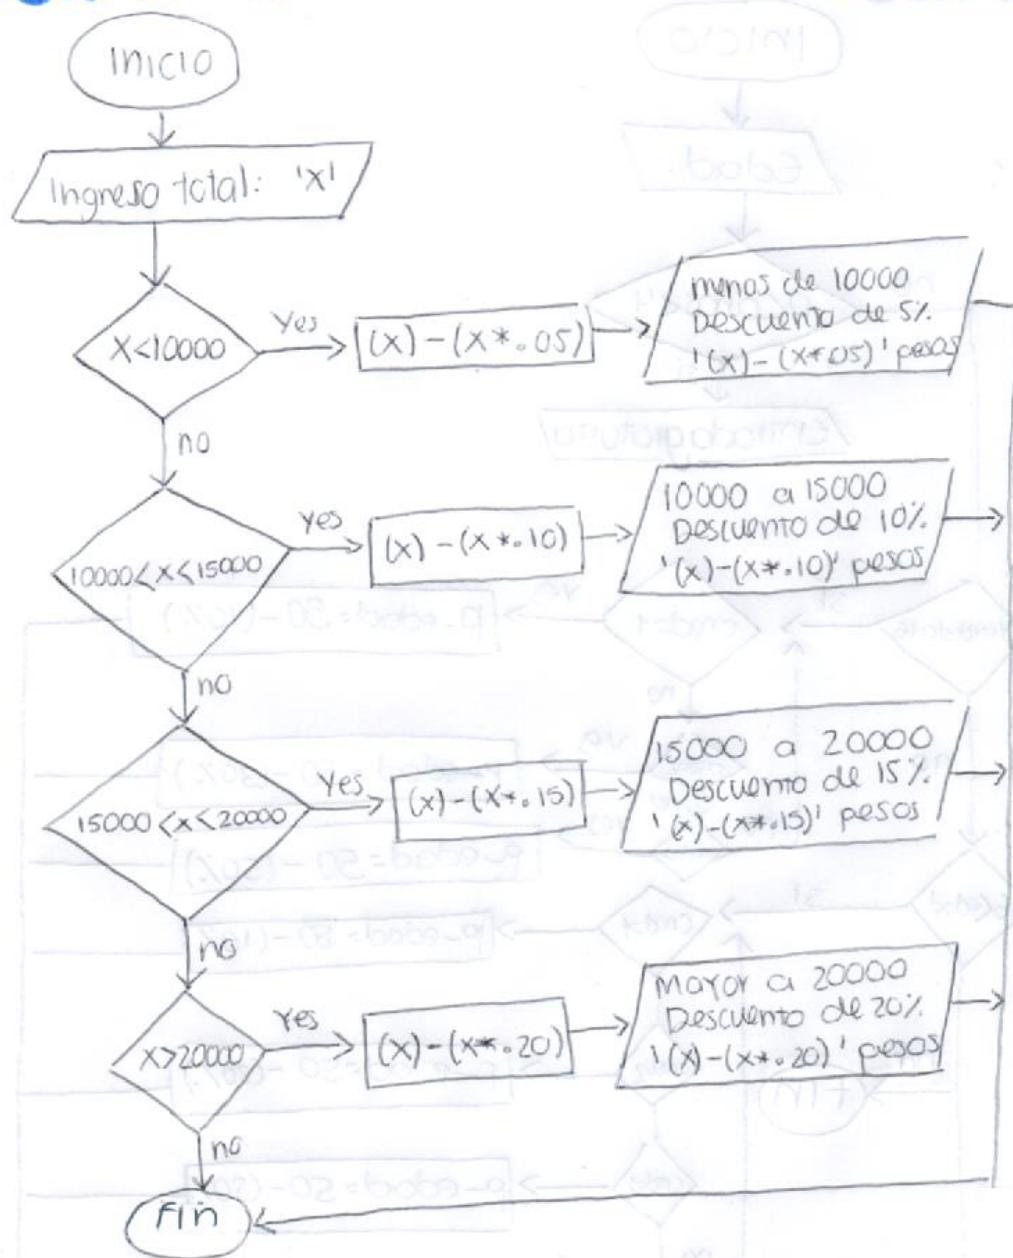 Inicio
Ingreso total: 'X'
X<10000
Yes
(x)-(x*.05)
menos de 10000
Descuento de 5%
'(x)-(x*.05)' pesos
no
10000<x<15000
Yes
(x)-(x*.10)
10000 a 15000
Descuento de 10%
'(x)-(x*.10)' pesos
no
15000<x<20000
Yes
(x)-(x*.15)
15000 a 20000
Descuento de 15%
'(x)-(x*.15)' pesos
no
X>20000
Yes
(x)-(x*.20)
Mayor a 20000
Descuento de 20%
'(x)-(x*.20)' pesos
no
Fin